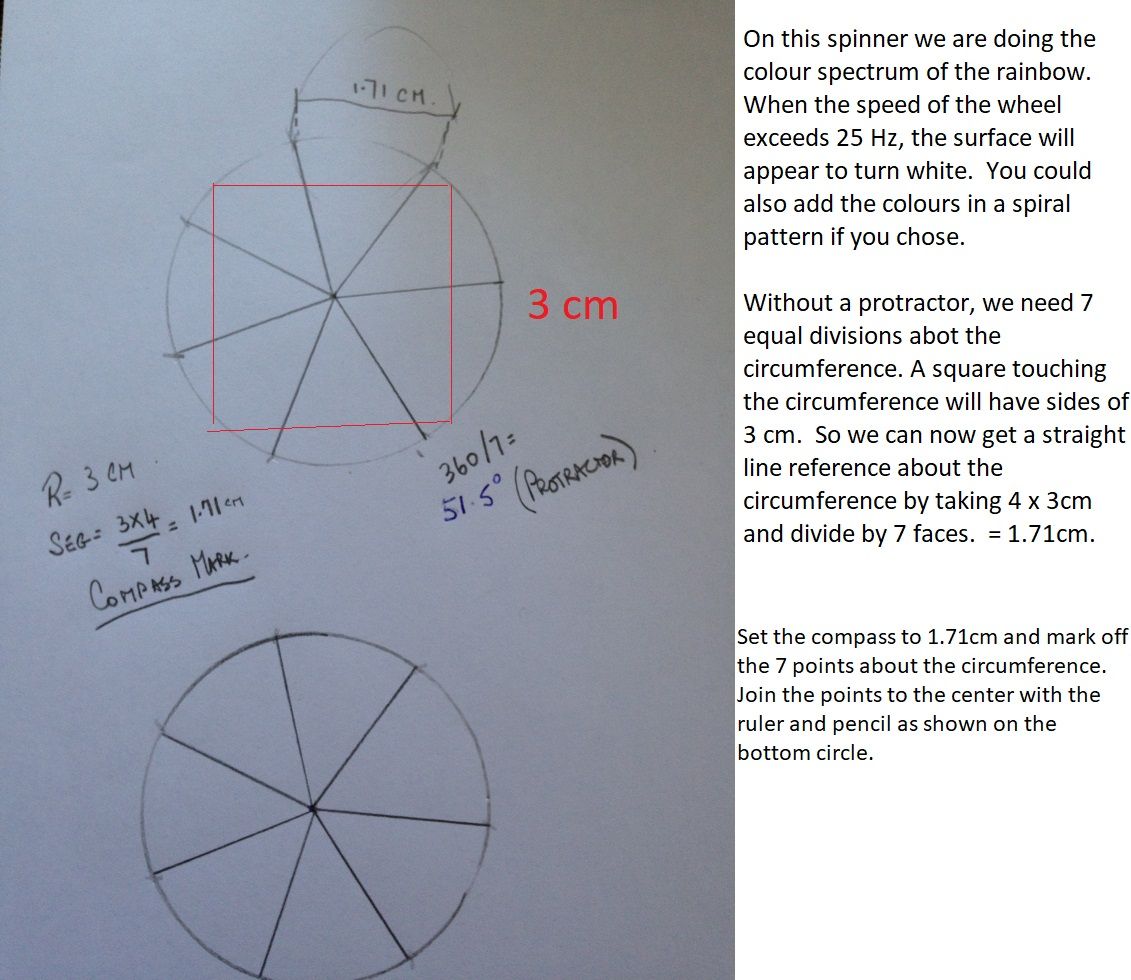 1.71 CM.
3 cm
R= 3 CM
SEG= 3X4 = 1.71 cm
7
COMPASS MARK.
360/7=
51.5° (PROTRACTOR)
On this spinner we are doing the
colour spectrum of the rainbow.
When the speed of the wheel
exceeds 25 Hz, the surface will
appear to turn white.  You could
also add the colours in a spiral
pattern if you chose.
Without a protractor, we need 7
equal divisions abot the
circumference. A square touching
the circumference will have sides of
3 cm.  So we can now get a straight
line reference about the
circumference by taking 4 x 3cm
and divide by 7 faces.  = 1.71cm.
Set the compass to 1.71cm and mark off
the 7 points about the circumference.
Join the points to the center with the
ruler and pencil as shown on the
bottom circle.